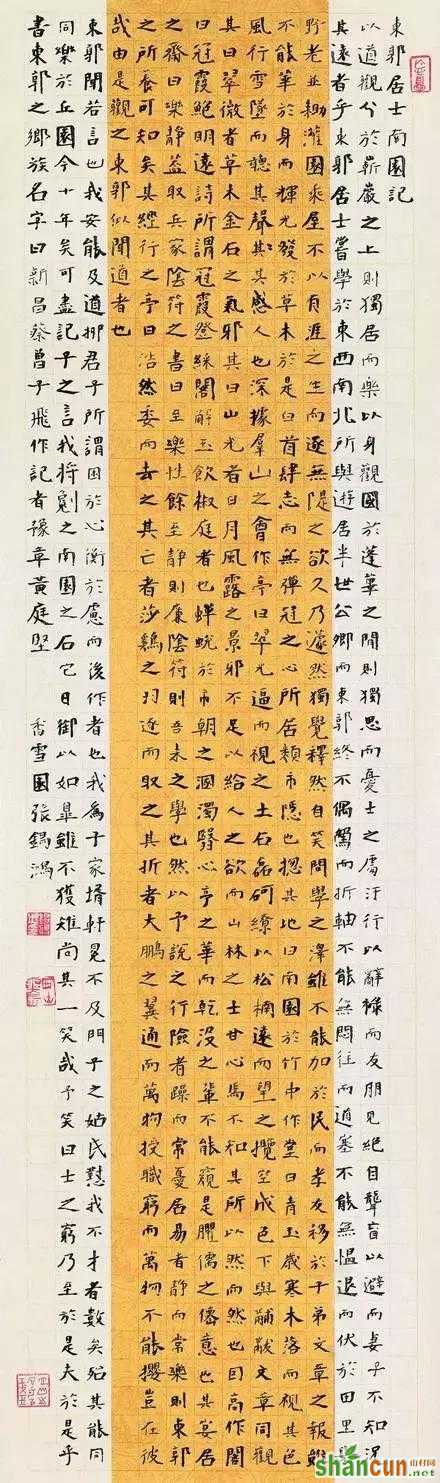 東郭居士南園記
以道觀分於嶄巖之上則獨居而樂以身觀國於蓬蓽之間則獨思而憂士之處汙行以辭祿而友朋見絕自聾盲以避而妻子不知況
其遠者乎東郭居士嘗學於東西南北所與遊居半世公卿而東郭終不偶駕而折軸不能無悶往而道塞不能無慍退而伏於田里與
野老並鋤灌園乘屋不以有涯之生而逐無隄之欲久乃蘧然獨覺釋然自笑問學之澤雖不能加於民而孝友移於子弟文章之報雖
不能華於身而輝光發於草木於是白首肆志而無彈冠之心所居類市隱也揔其地曰南園於竹中作堂曰青玉歲寒木落而視其色
風行雪墮而聽其聲其感人也深據羣山之會作亭曰翠光逼而視之土石磊砢繚以松楠遠而望之攬空成色下與黼黻文章同觀
其曰翠微者草木金石之氣邪其曰山光者日月風露之景邪不足以給人之欲而山林之士甘心焉不知其所以然而然也因高作閣
曰冠霞鮑明遠詩所謂冠霞登綵閣解玉飲椒庭者也蟬蛻於市朝之溷濁翳心亭之華而乾沒之輩不能窺是臞儒之僊意也其宴居
之齋曰樂靜蓋取兵家陰符之書曰至樂性餘至靜則廉陰符則吾未之學也然以予說之行險者躁而常憂居易者靜而常樂則東郭
之所養可知矣其經行之亭曰浩然委而去之其亡者莎鷄之羽逐而取之其折者大鵬之翼通而萬物授職窮而萬物不能攖豈在彼
哉由是觀之東郭似聞道者也
東郭聞若言也我安能及道抑君子所謂困於心衡於慮而後作者也我為子家壻軒冕不及門子之姑氏懟我不才者數矣殆其能同
同樂於丘園今十年矣可盡記子之言我將劖之南園之石它日御以如皋雖不獲雉尚其一笑哉予笑曰士之窮乃至於是夫於是乎
書東郭之鄉族名字曰新昌蔡曾子飛作記者豫章黃庭堅 香雪園張錫鴻
shancun.net
山村网